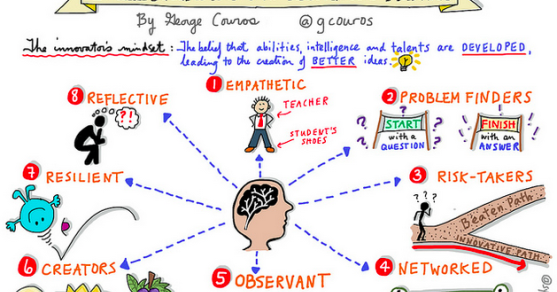 By George Couros @gcouros
The innovator's mindset : The belief that abilities, intelligence and talents are DEVELOPED,
leading to the creation of BETTER ideas.
1 EMPATHETIC
TEACHER
STUDENT'S
SHOES
2 PROBLEM FINDERS
START
with a
QUESTION
FINISH
with an
ANSWER
3 RISK-TAKERS
???
Beaten Path
INNOVATIVE PATH
4 NETWORKED
5 OBSERVANT
6 CREATORS
7 RESILIENT
8 REFLECTIVE
?!